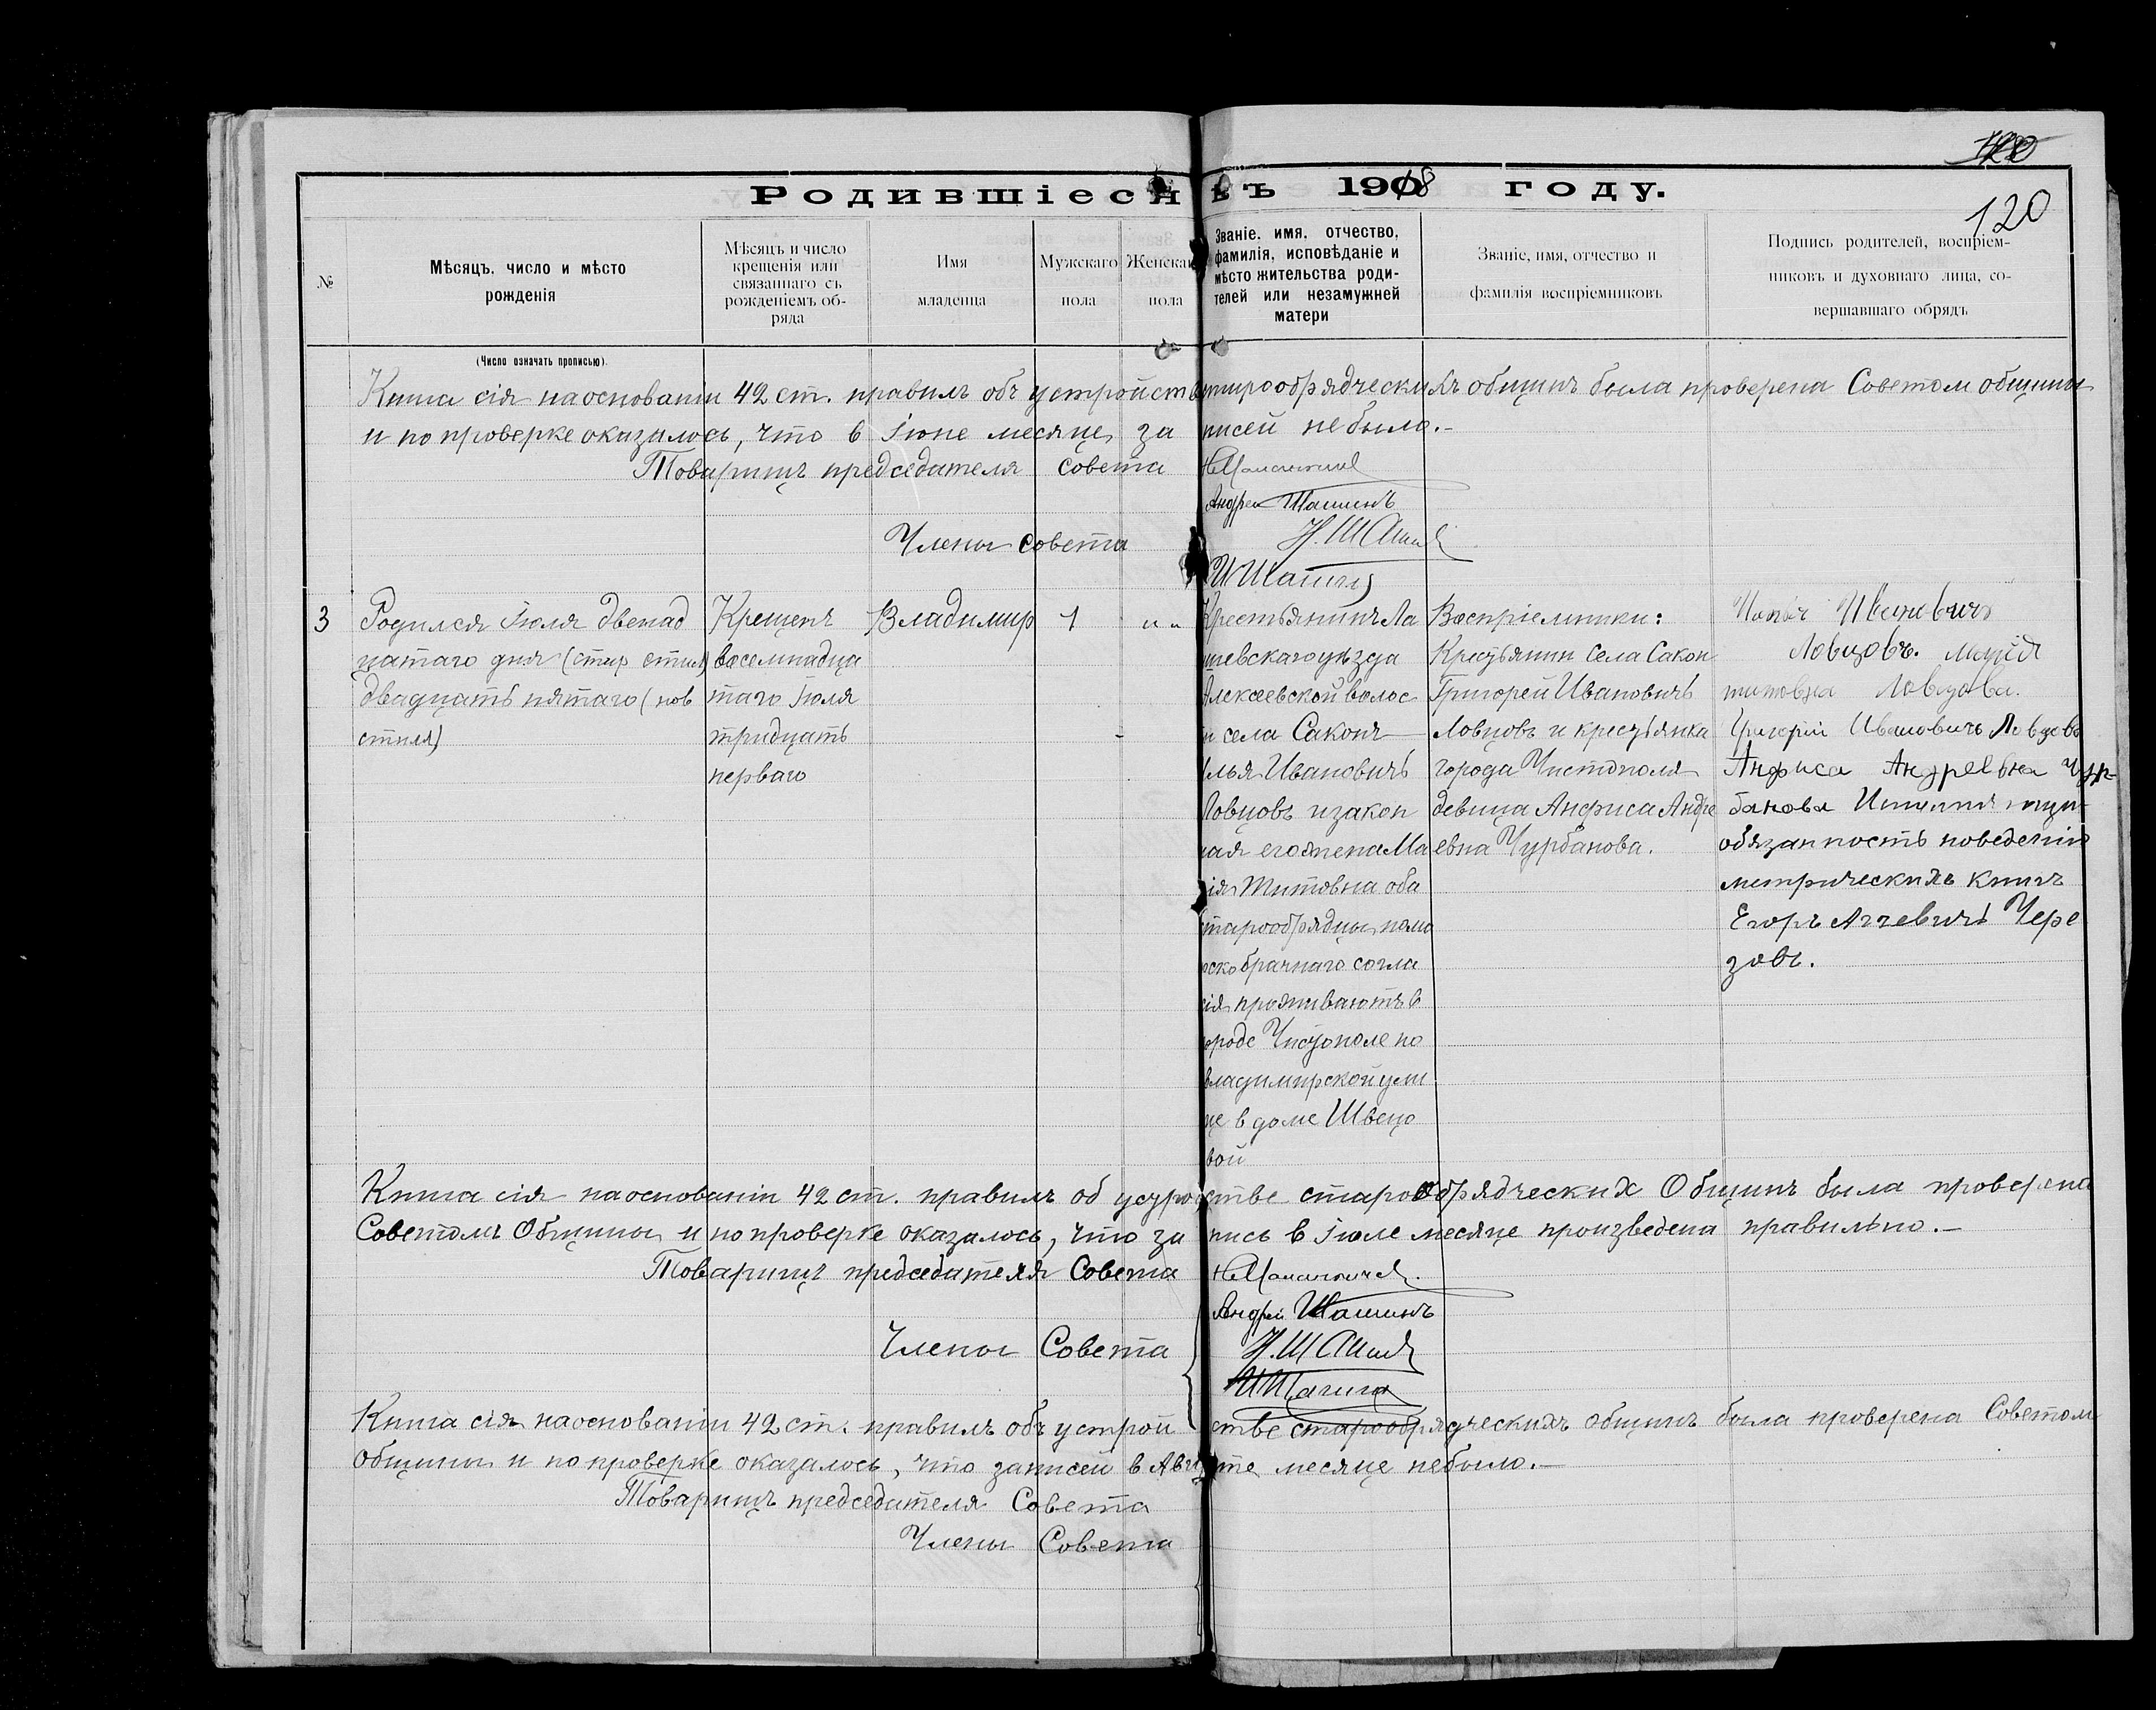 120
Родившіеся въ 1918 году.
120
№
Мѣсяцъ, число и мѣсто
рожденія
Мѣсяцъ и число
крещенія или
связаннаго съ
рожденіемъ об-
ряда
Имя
младенца
Мужскаго
пола
Женскаго
пола
Званіе. имя. отчество,
фамилія, исповѣданіе и
мѣсто жительства роди-
телей или незамужней
матери
Званіе, имя, отчество и
фамилія воспріемниковъ
Подпись родителей, воспріем-
никовъ и духовнаго лица, со-
вершавшаго обрядъ
(Число означать прописью).
Книга сія на основаніи 42 ст. правилъ объ устройств старообрядческихъ общинъ была проверена Советом общины
и по проверке оказалось, что в іюне месяце за писей не было.-
Товарищъ председателя совета
Андрей Шашинъ
Н. Шашин
Члены совета
И Шашин
3
Родился іюля двенад
цатаго дня (стар стиля)
двадцать пятаго (нов
стиля)
Крещенъ
восемнадца
таго іюля
тридцать
перваго
Владимир
1
" "
Крестьянинъ Ла
ишевскаго уѣзда
Алексеевской волос
ти села Саконъ
Илья Ивановичъ
Ловцовъ и закон
ная его жена Ма
рія Титовна оба
старообрядцы помо
рско брачнаго согла
сія проживаютъ в
городе Чистополе по
владимирской ули
це в доме Швецо
вой
Воспріемники:
Крестьянин села Сакон
Григорей Ивановичъ
Ловцовъ и крестьянка
города Чистополя
девица Анфиса Андре
евна Чурбанова.
Ивановичъ
Ловцовъ. Марія
титовна Ловцова.
Григорій Ивановичъ Ловцовъ
Анфиса Андреевна Чур-
банова
обязанность поведенію
метрическихъ книгъ
Егоръ Чере
зовъ.
Книга сія на основаніи 42 ст. правилъ об устройстве старообрядческих Общинъ была проверена
Советомъ Общины и по проверке оказалось, что за пись в іюле месяце произведена правильно.-
Товарищъ председателя Совета
Андрей Шашинъ
Члены Совета
Н. Шашин
И Шашин
Книга сія на основаніи 42 ст. правилъ объ устрой стве старообрядческихъ общинъ была проверена Советом
общины и по проверке оказалось, что записей в Августе месяце небыло.-
Товарищъ председателя Совета
Члены Совета